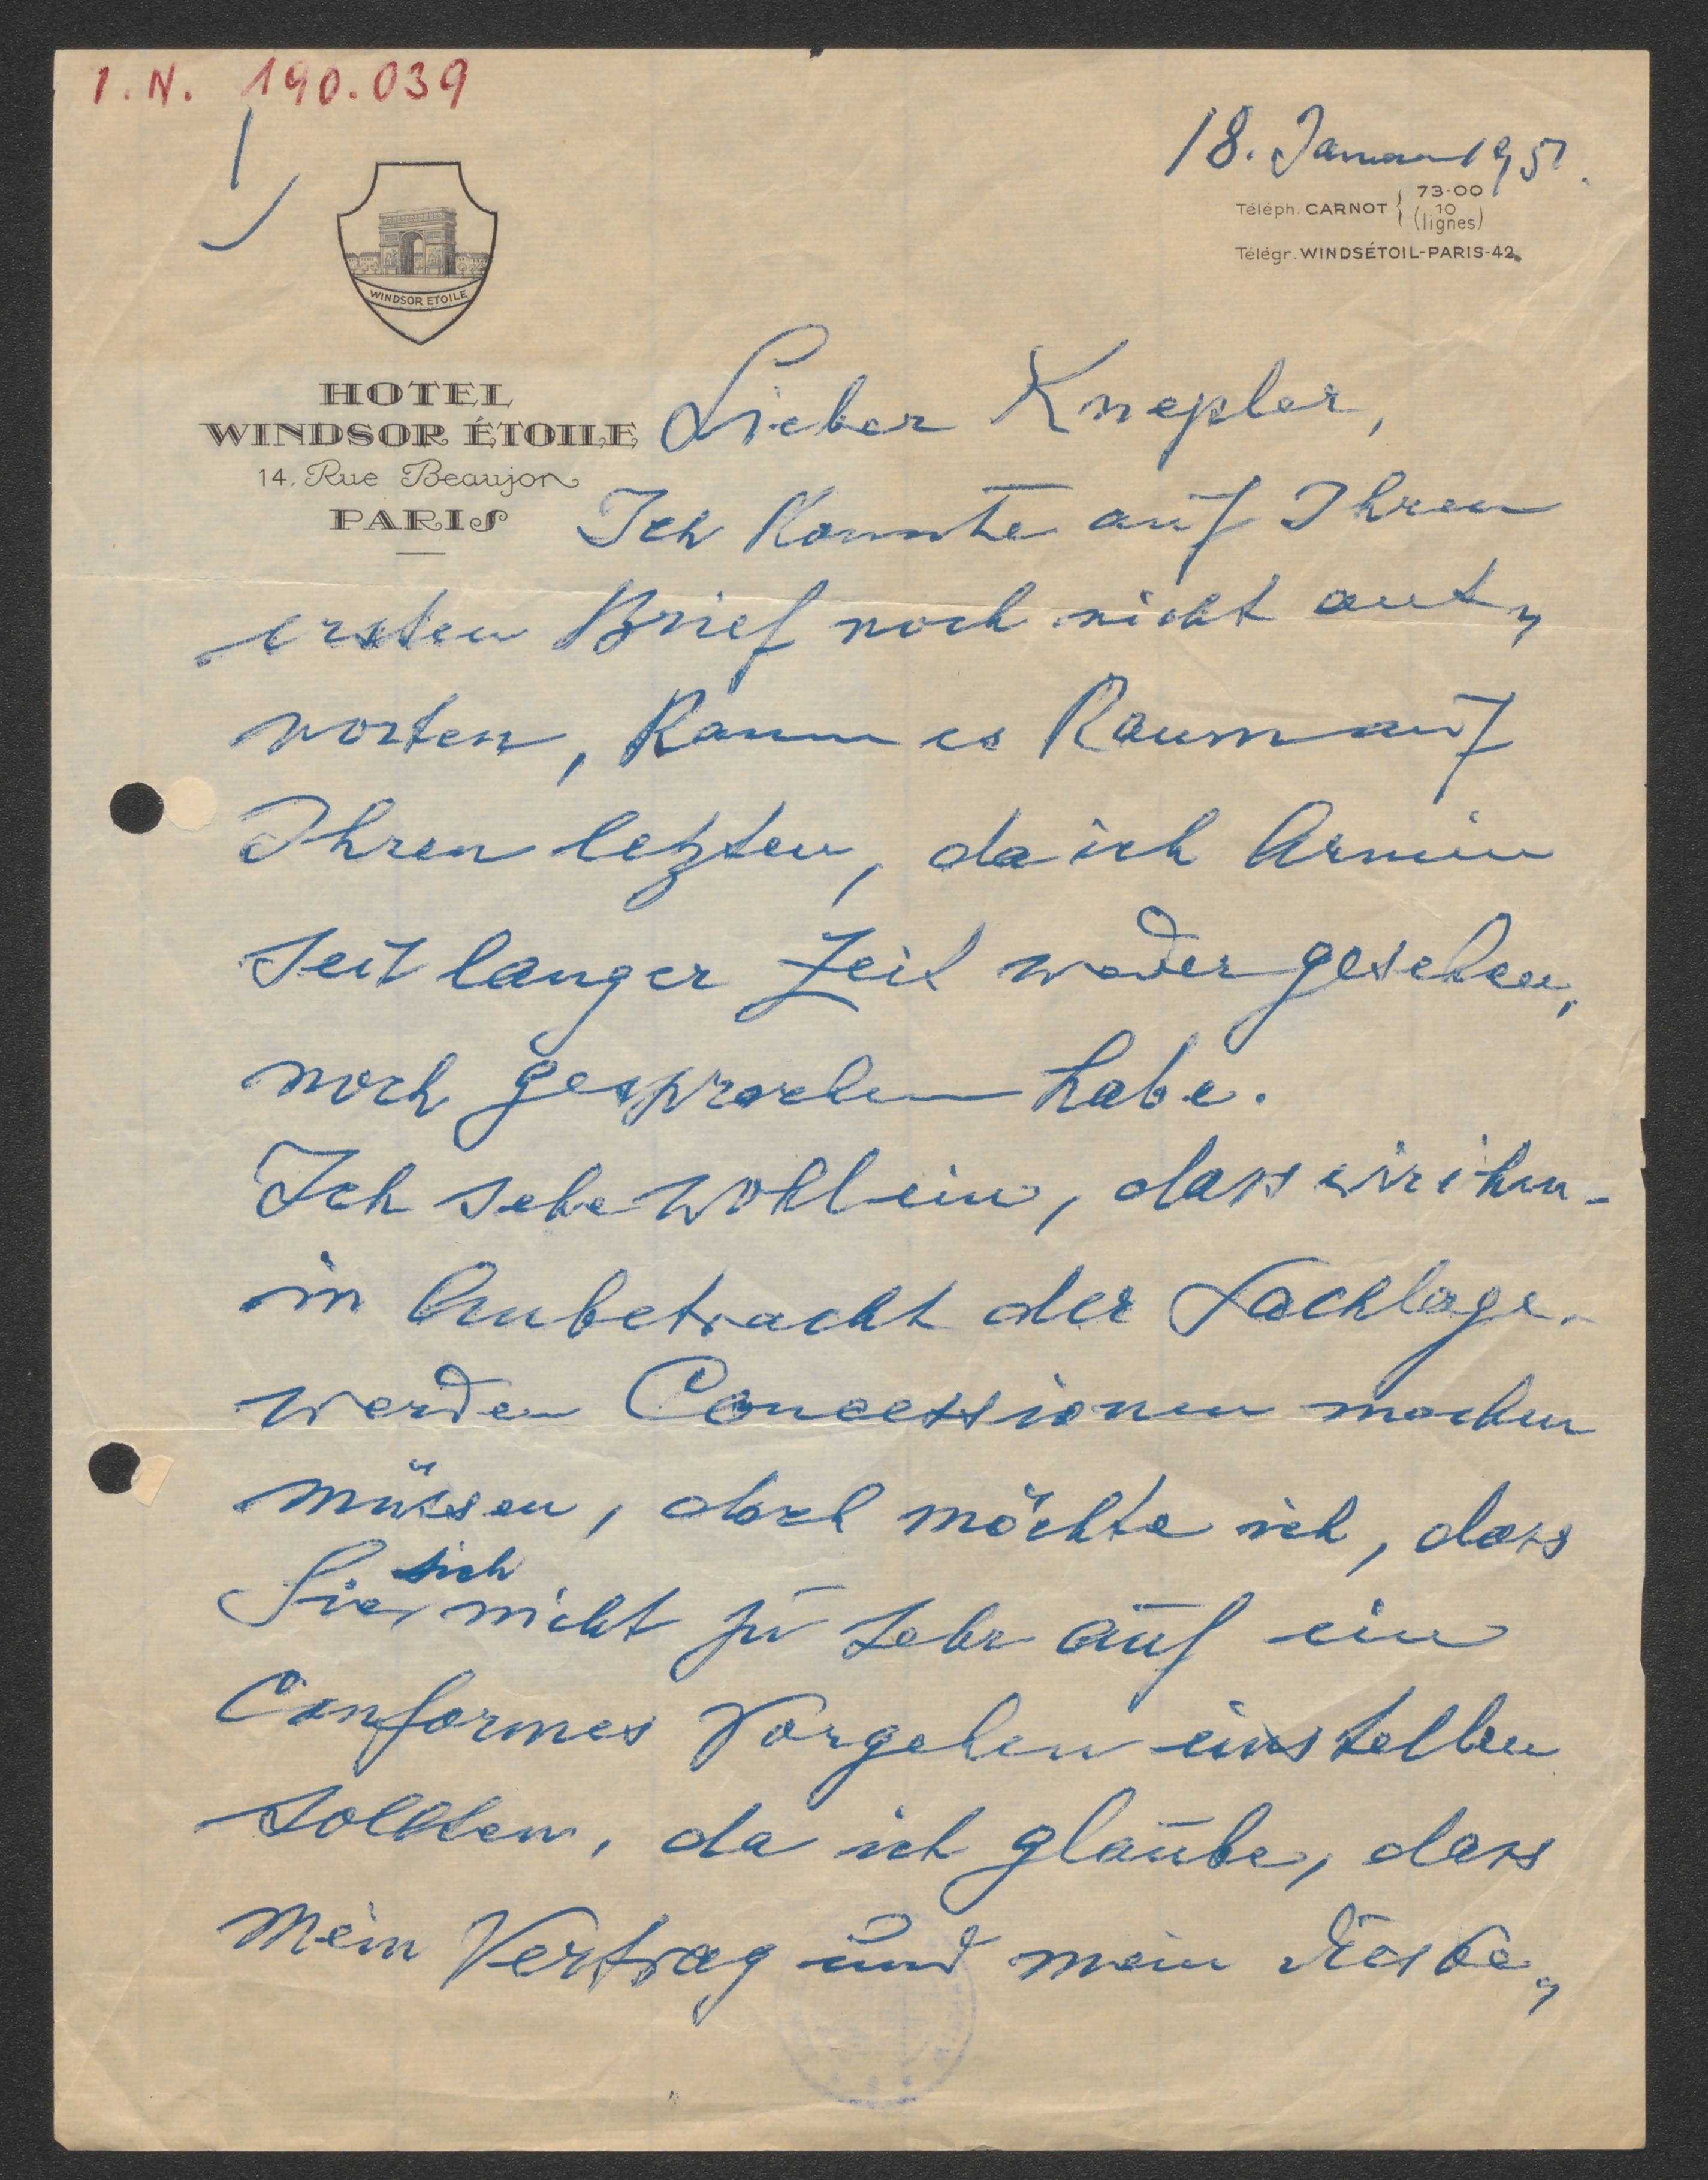 I.N. 190.039
18. Januar 1951.
Téléph. CARNOT { 73-00
10
(lignes)
Télégr. WINDSÉTOIL-PARIS-42
WINDSOR ETOILE
HOTEL
WINDSOR ÉTOILE
14, Rue Beaujon
PARIS
Lieber Knepler,
Ich konnte auf Ihren
ersten Brief noch nicht ant„
worten, kann es kaum auf
Ihren letzten, da ich Armin
seit langer Zeit weder gesehen,
noch gesprochen habe.
Ich sehe wohl ein, dass wir ihm -
in Anbetracht der Sachlage -
werden Concessionen machen
müssen, doch möchte ich, dass
Sie sich nicht zu sehr auf ein
Conformes Vorgehen einstellen
sollten, da ich glaube, dass
mein Vertrag und mein